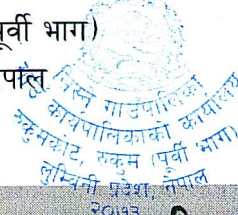 पूर्वी भाग)
पाल
गाउँपालिका
कार्यपालिकाको कार्यालय
रुकुमकोट, रुकुम (पूर्वी भाग)
लुम्बिनी प्रदेश, नेपाल
२०७३